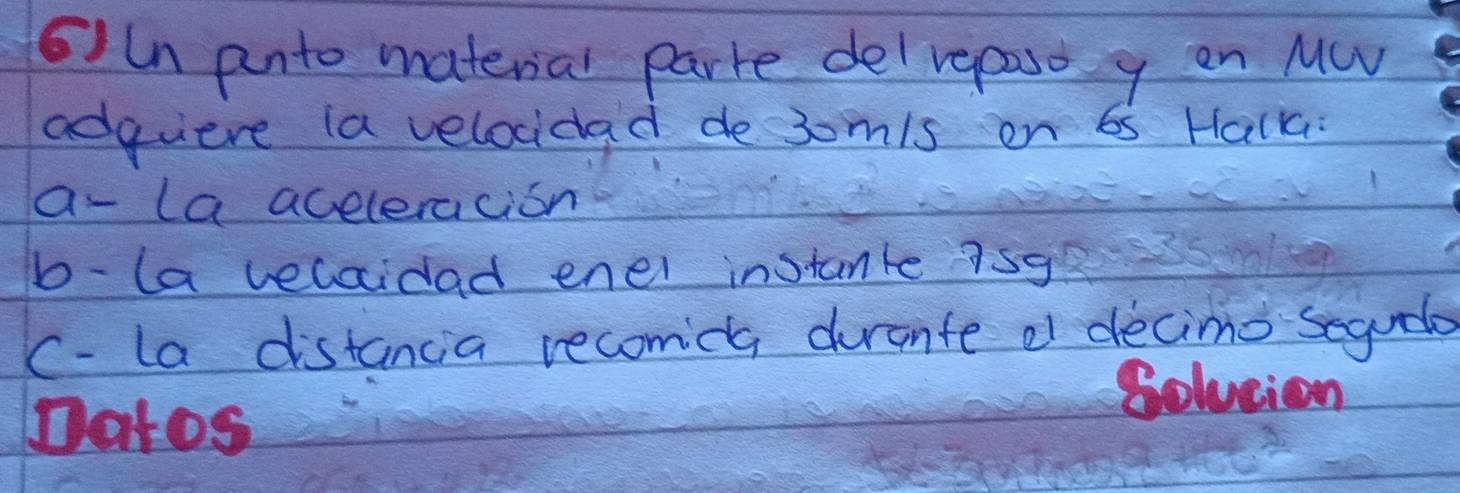 6) Un punto material parte del reposo y en MUV
adquiere la velocidad de 30m/s en 6s Halla:
a- la aceleración
b- la velocidad en el instante 7sg
c- la distancia recorrida durante el décimo segundo
Datos Solucion